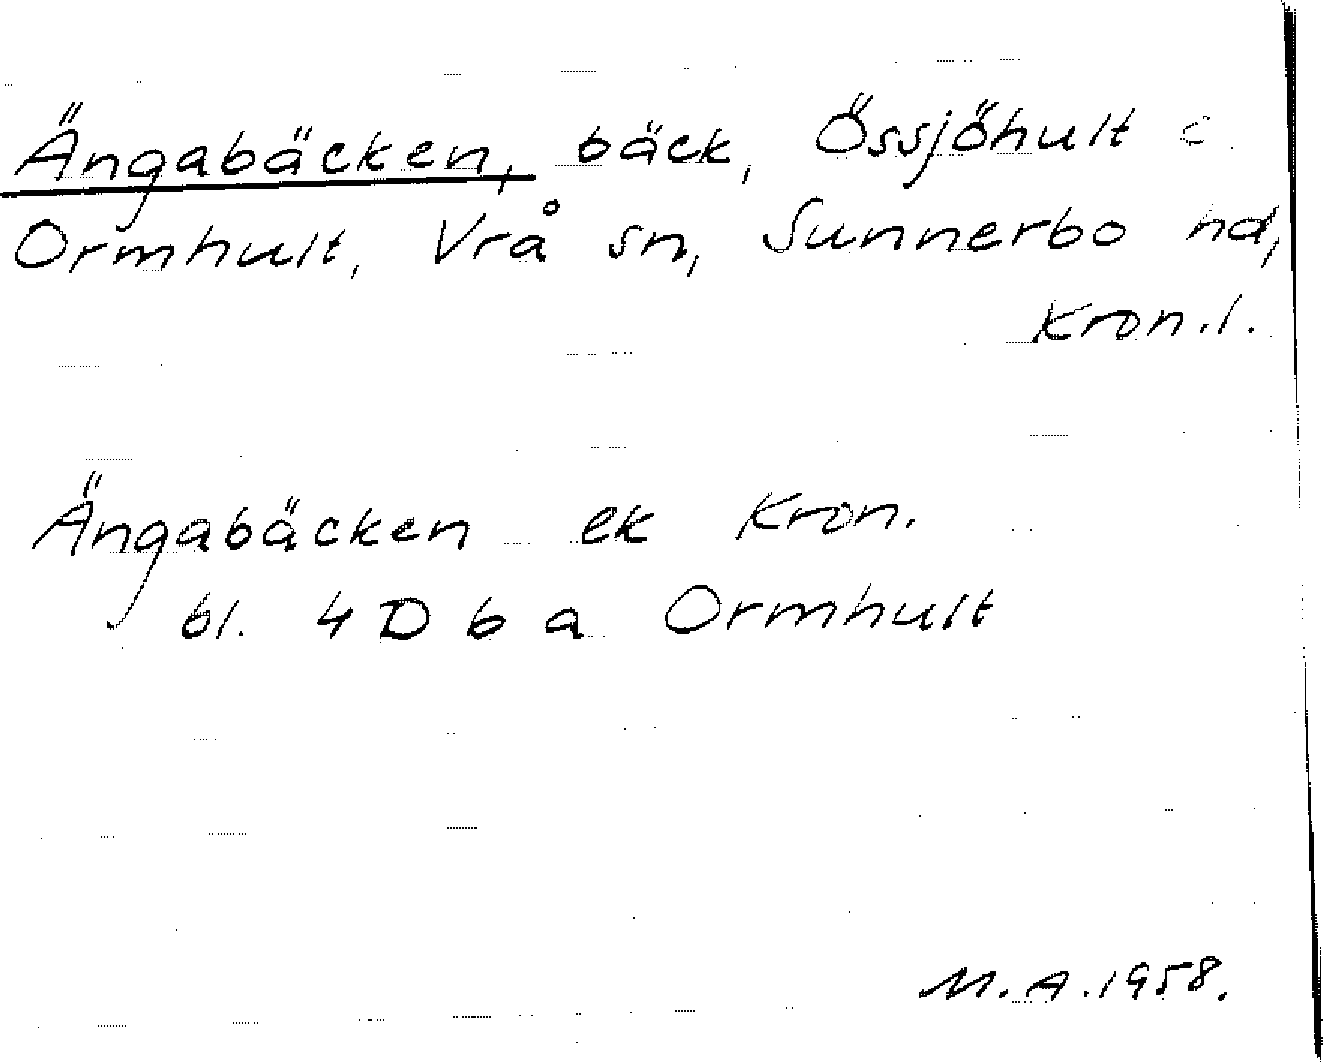 Ängabäcken, bäck, Össjöhult
Ormhult, Vrå sn, Sunnerbo hd,
Kron.l.
Ängabäcken ek Kron.
bl. 4 D b a Ormhult
M.A.1958.